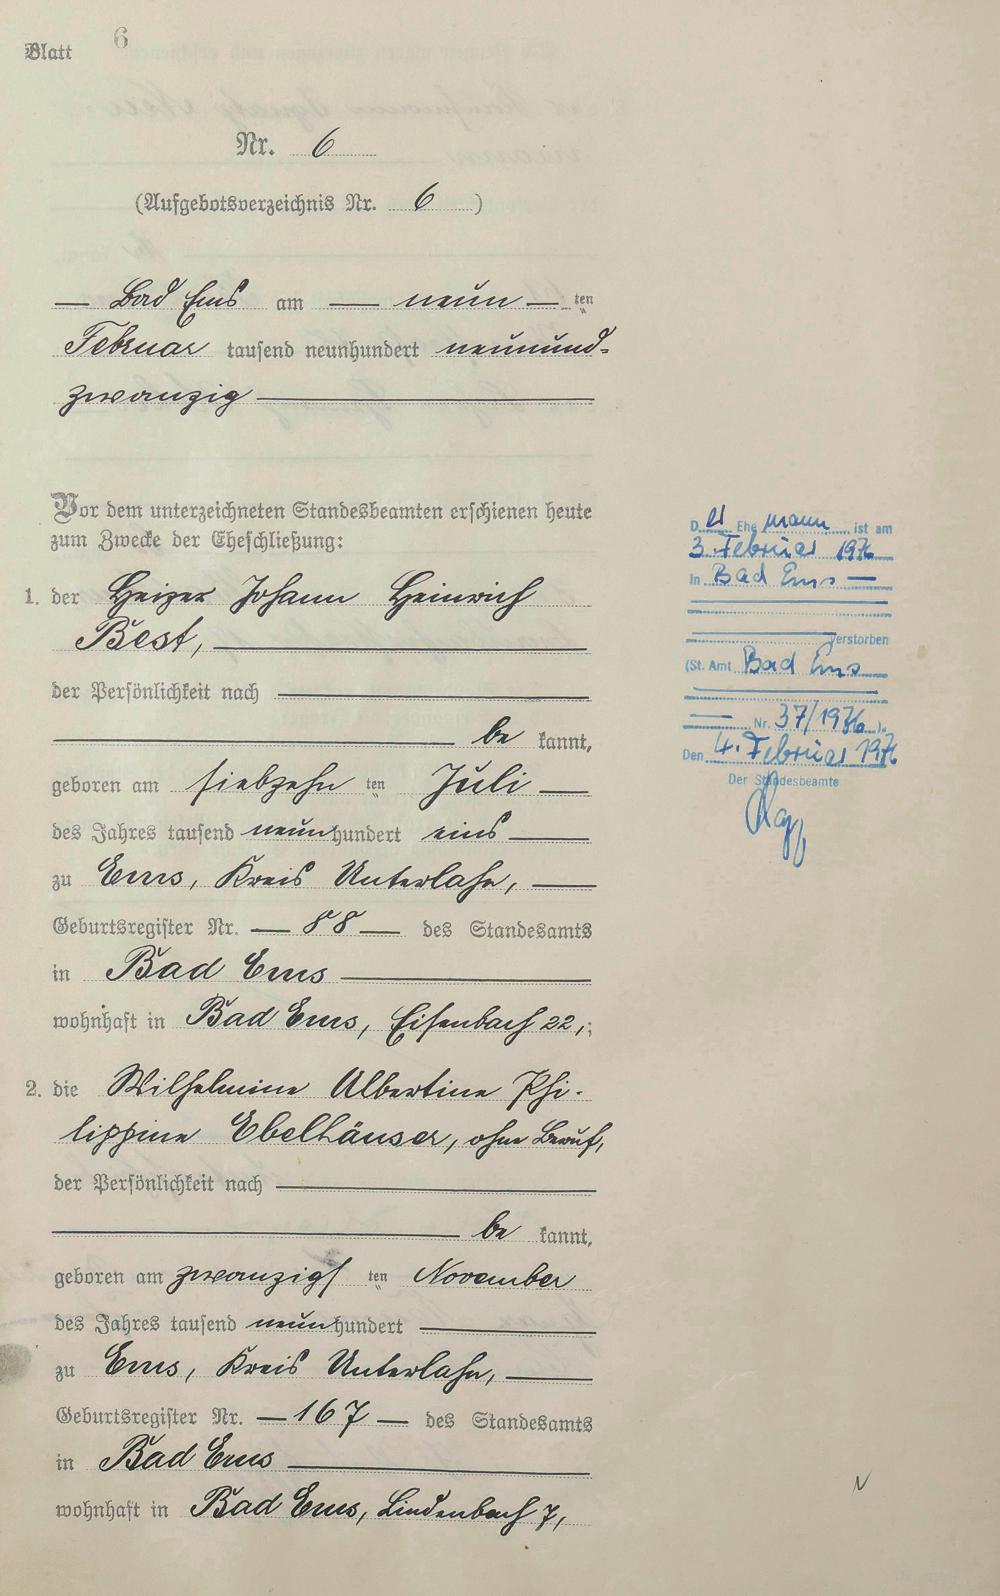 Blatt 6
Nr. 6
(Aufgebotsverzeichnis Nr. 6 )
— Bad Ems am — neun — ten
Februar tausend neunhundert neunund-
zwanzig —
Vor dem unterzeichneten Standesbeamten erschienen heute
zum Zwecke der Eheschließung:
1. der Heizer Johann Heinrich
Best, —
der Persönlichkeit nach —
— be kannt,
geboren am siebzehn ten Juli —
des Jahres tausend neunhundert eins —
zu Ems, Kreis Unterlahn, —
Geburtsregister Nr. — 88 — des Standesamts
in Bad Ems —
wohnhaft in Bad Ems, Eisenbach 22,;
2. die Wilhelmine Albertine Phi-
lippine Ebelhäuser, ohne Beruf,
der Persönlichkeit nach —
— be kannt,
geboren am zwanzigs ten November
des Jahres tausend neunhundert —
zu Ems, Kreis Unterlahn, —
Geburtsregister Nr. — 167 — des Standesamts
in Bad Ems —
wohnhaft in Bad Ems, Lindenbach 7,
D er Ehe mann ist am
3. Februar 1976
in Bad Ems —
verstorben
(St. Amt Bad Ems
— Nr. 37/1976 ).
Den 4. Februar 1976
Der Standesbeamte